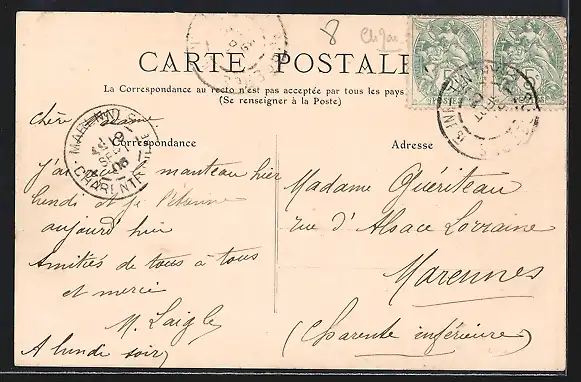 8
CARTE POSTALE
La Correspondance au recto n'est pas acceptée par tous les pays.
(Se renseigner à la Poste)
Correspondance
Adresse
chère
J'ai manteau hier
lundi et je
aujourd'hui
Amitiés de tous à tous
et merci
M. Laigle
A lundi soir
MARENNES
SEPT
06
CHARENTE
5
5
POSTES
Madame Guériteau
rue d'Alsace Lorraine
Marennes
(Charente inférieure)